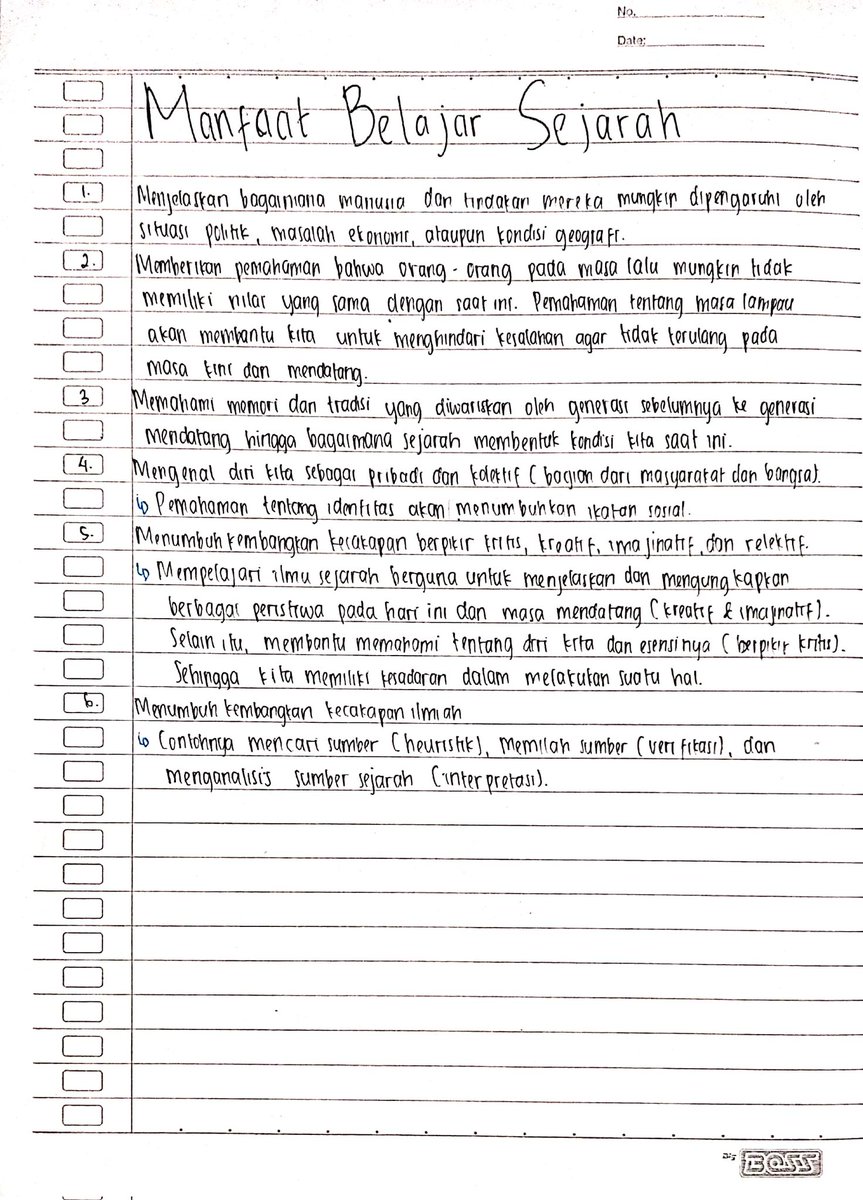 No.
Date:
Manfaat Belajar Sejarah
1. Menjelaskan bagaimana manusia dan tindakan mereka mungkin dipengaruhi oleh
situasi politik, masalah ekonomi, ataupun kondisi geografi.
2. Memberikan pemahaman bahwa orang-orang pada masa lalu mungkin tidak
memiliki nilai yang sama dengan saat ini. Pemahaman tentang masa lampau
akan membantu kita untuk menghindari kesalahan agar tidak terulang pada
masa kini dan mendatang.
3 Memahami memori dan tradisi yang diwariskan oleh generasi sebelumnya ke generasi
mendatang hingga bagaimana sejarah membentuk kondisi kita saat ini.
4. Mengenal diri kita sebagai pribadi dan kolektif (bagian dari masyarakat dan bangsa).
↳ Pemahaman tentang identitas akan menumbuhkan ikatan sosial.
5. Menumbuh kembangkan kecakapan berpikir kritis, kreatif, imajinatif, dan relektif.
↳ Mempelajari ilmu sejarah berguna untuk menjelaskan dan mengungkapkan
berbagai peristiwa pada hari ini dan masa mendatang (kreatif & imajinatif).
Selain itu, membantu memahami tentang diri kita dan esensinya (berpikir kritis).
Sehingga kita memiliki kesadaran dalam melakukan suatu hal.
6. Menumbuh kembangkan kecakapan ilmiah
↳ Contohnya mencari sumber (heuristik), memilah sumber (verifikasi), dan
menganalisis sumber sejarah (interpretasi).
Big BOSS